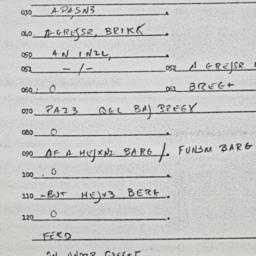 030 APASN3
040 AGREJSR, BRIKK
050 AN INZL,
051 -/- 052 A GREJSR
060 0 062 BREG+
070 PAZ3 QGL BAJ BREGY
080 0
090 AF A HEJXN2 BARG /. FUNSM BARG
100 0
110 -BUT HEJX3 BERG
120 0
FERD